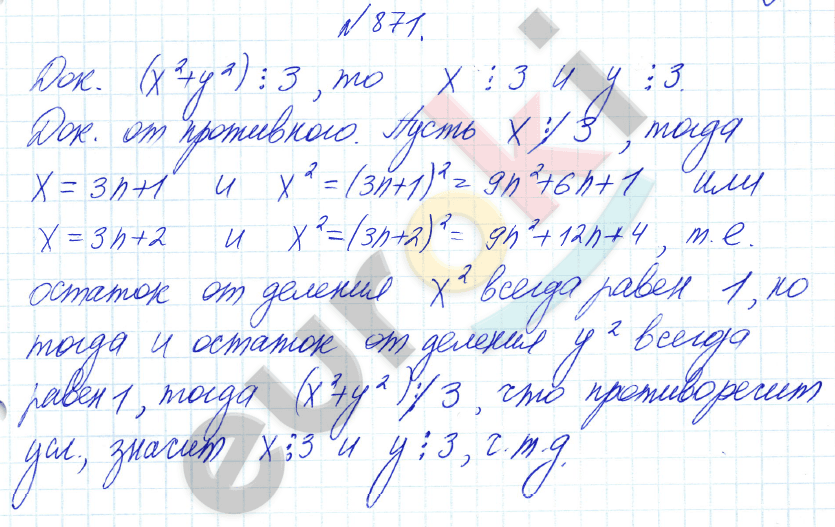 № 871.
Док. (x²+y²) ⋮ 3, то x ⋮ 3 и y ⋮ 3.
Док. от противного. Пусть x ⋮̸ 3, тогда
x = 3n+1 и x² = (3n+1)² = 9n²+6n+1 или
x = 3n+2 и x² = (3n+2)² = 9n²+12n+4, т.е.
остаток от деления x² всегда равен 1, но
тогда и остаток от деления y² всегда
равен 1, тогда (x²+y²) ⋮̸ 3, что противоречит
усл., значит x ⋮ 3 и y ⋮ 3, ч.т.д.
euroki